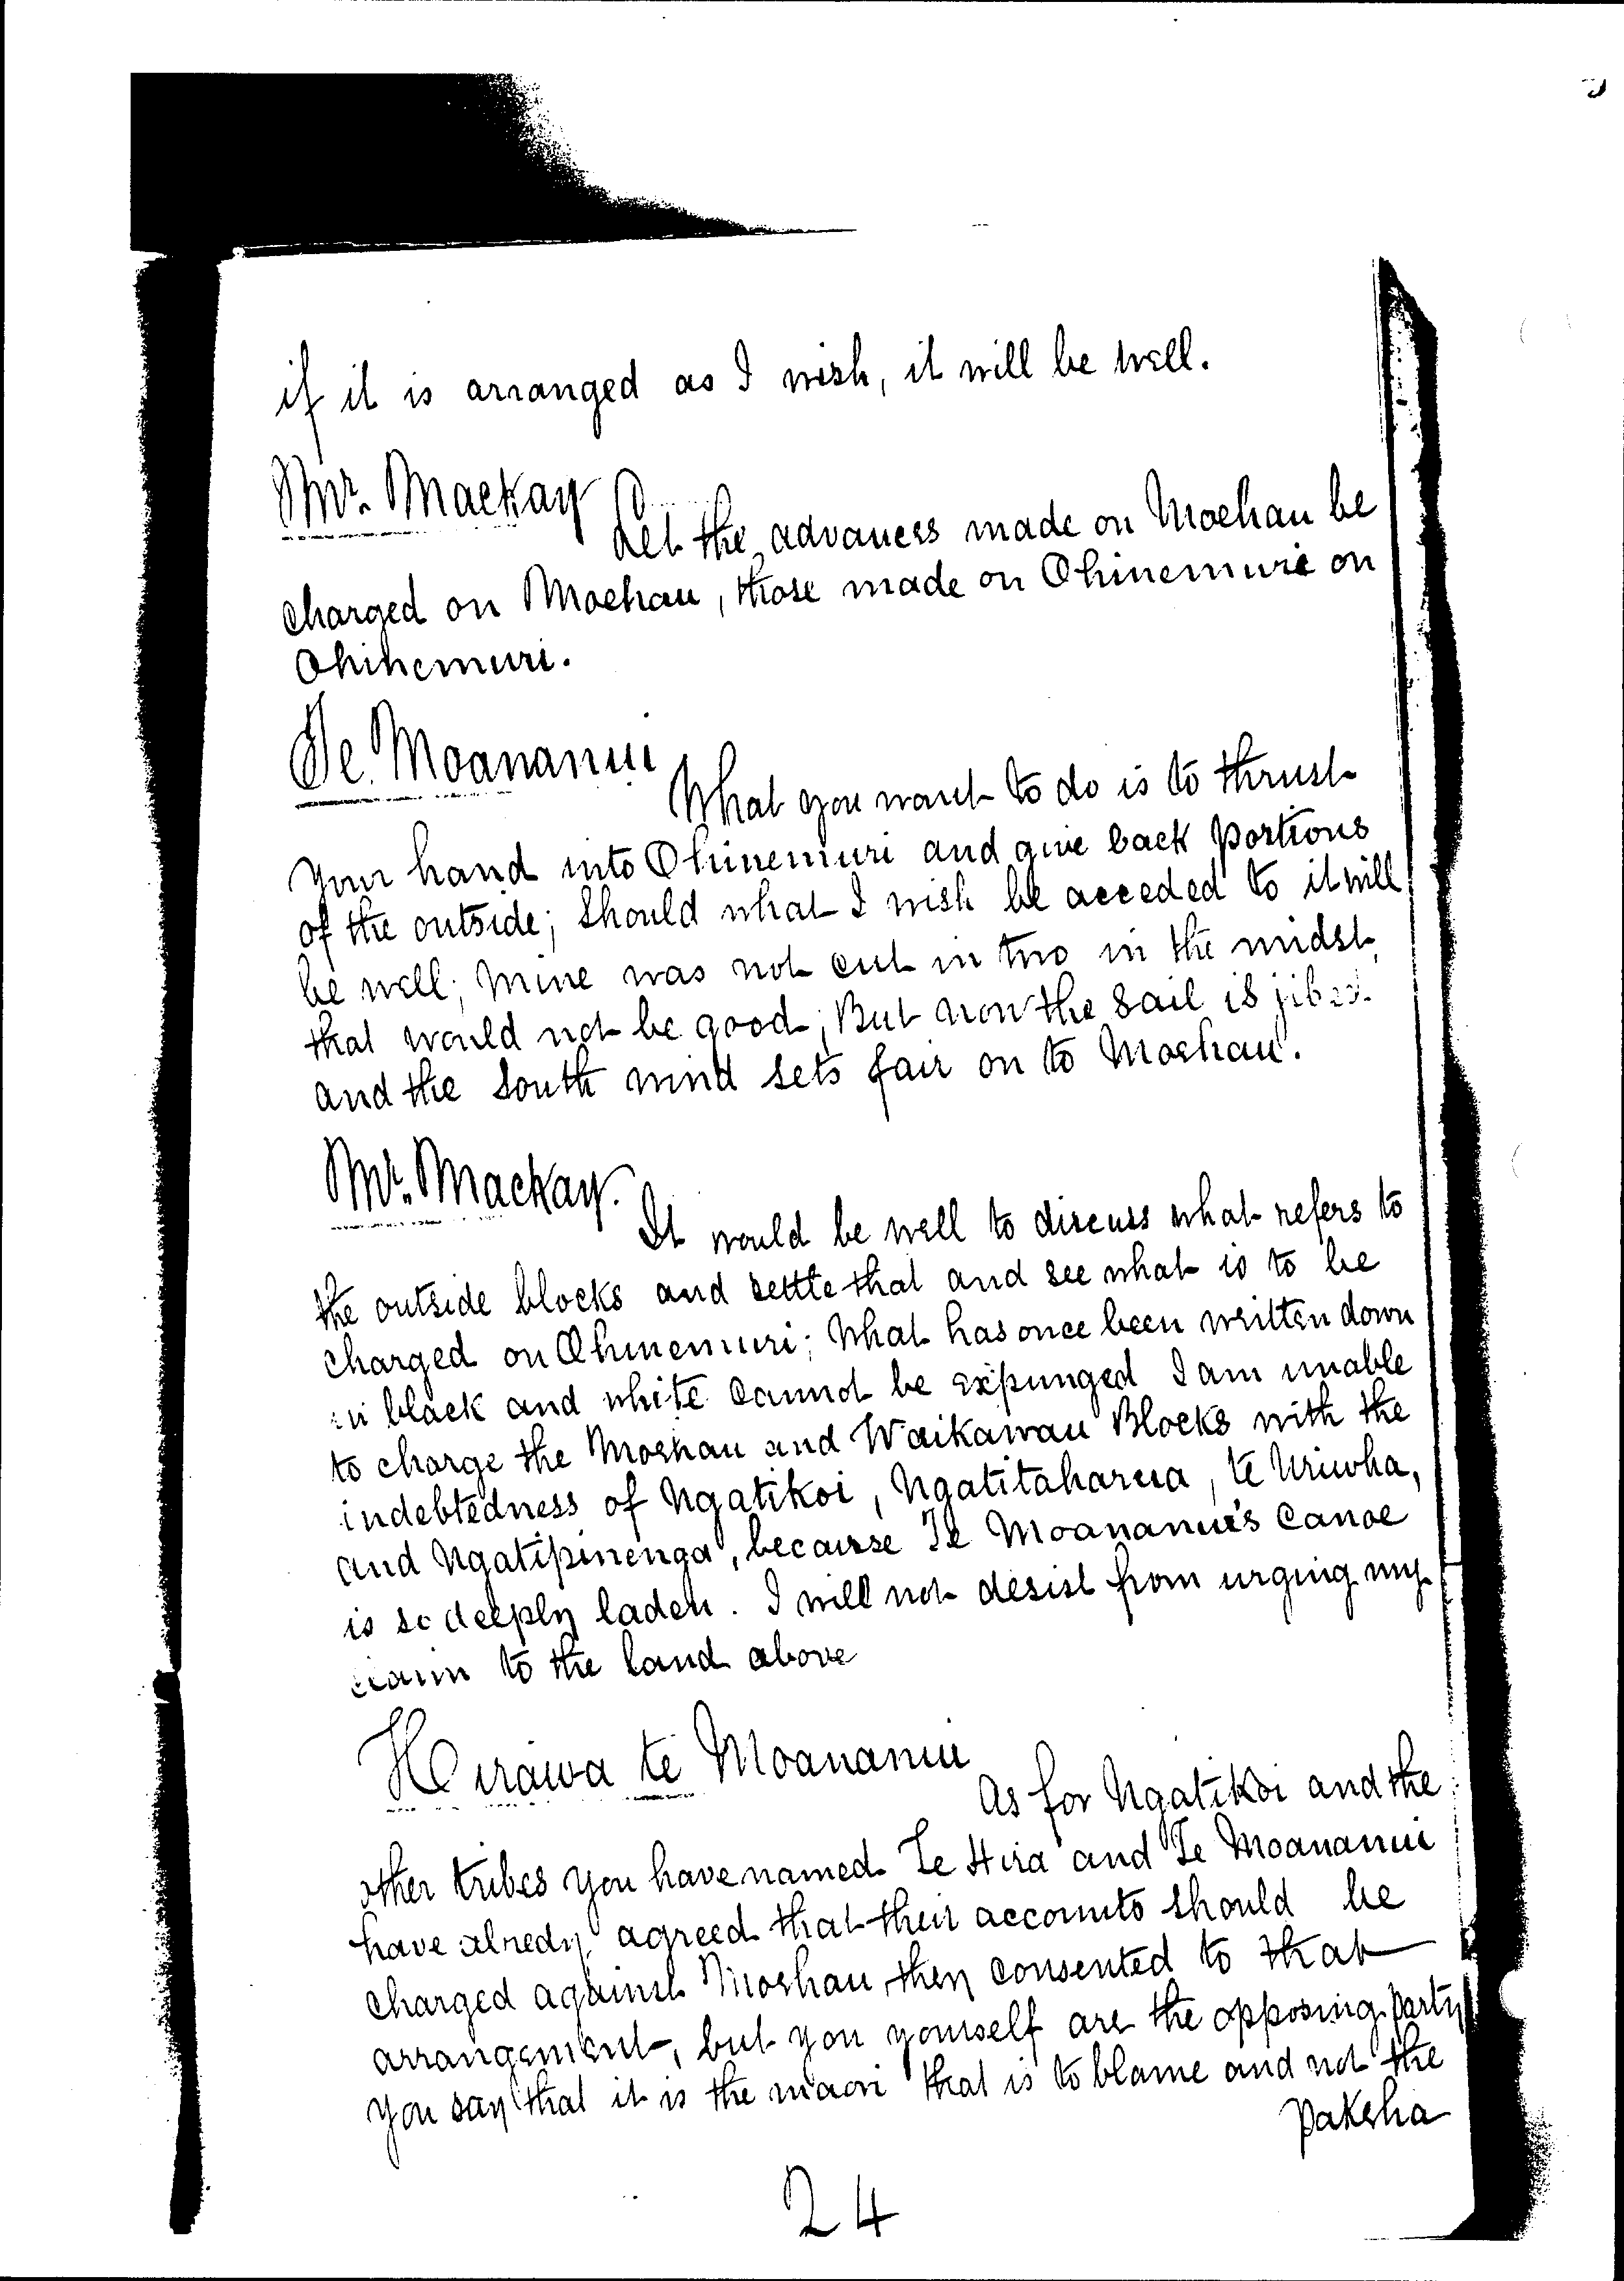 if it is arranged as I wish, it will be well.
Mr. Mackay
Let the advances made on Moehau be
charged on Moehau, those made on Ohinemuri on
Ohinemuri.
Te Moananui
What you want to do is to thrust
your hand into Ohinemuri and give back portions
of the outside; Should what I wish be acceded to it will
be well; Mine was not cut in two in the midst,
that would not be good; But now the sail is jibed
and the South wind sets fair on to Moehau.
Mr. Mackay.
It would be well to discuss what refers to
the outside blocks and settle that and see what is to be
charged on Ohinemuri; What has once been written down
in black and white cannot be expunged I am unable
to charge the Moehau and Waikawau Blocks with the
indebtedness of Ngatikoi, Ngatitaharua, te Uriwha,
and Ngatipinenga, because Te Moananui's Canoe
is so deeply laden. I will not desist from urging my
claim to the land above
Hirawa te Moananui
As for Ngatikoi and the
other tribes you have named Te Hira and Te Moananui
have alredy agreed that their accounts should be
charged against Moehau, they consented to that
arrangement, but you yourself are the opposing party
you say that it is the maori that is to blame and not the
pakeha
24